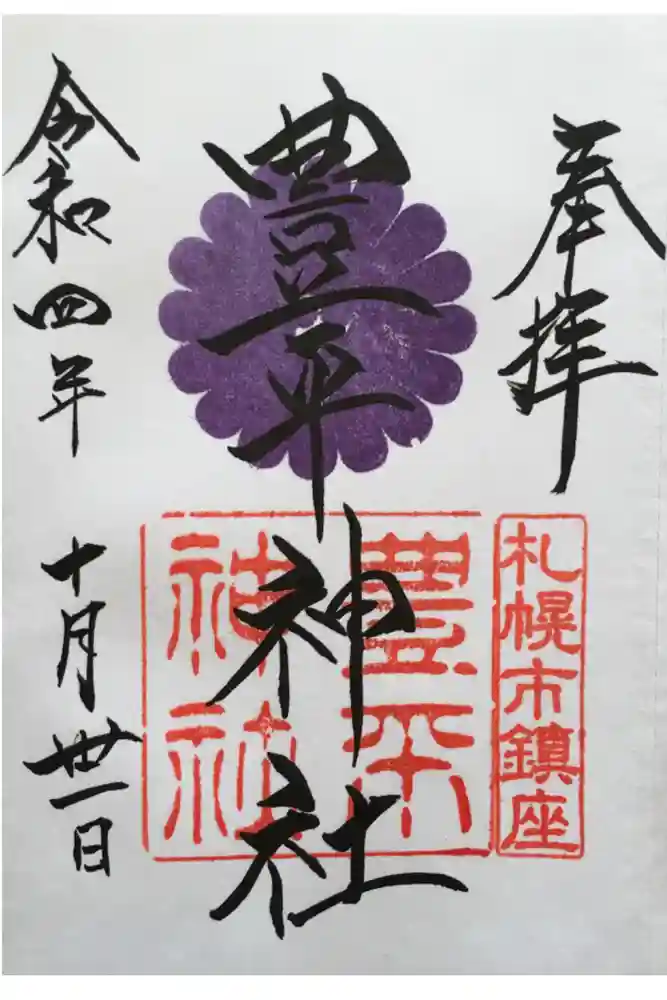 奉拝
札幌市鎮座
豊平神社
豊平
神社
令和四年
十月卅一日